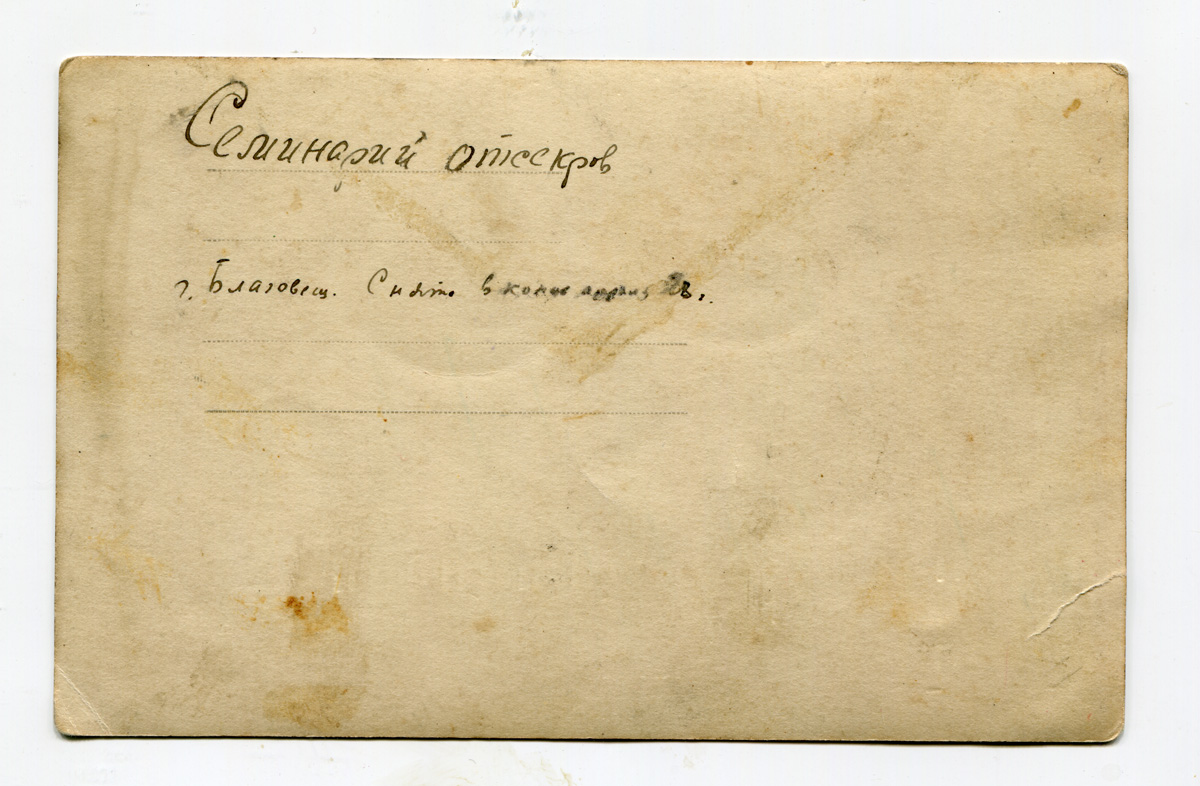 Семинарий отсекров
г. Благовещ. Снято в конце